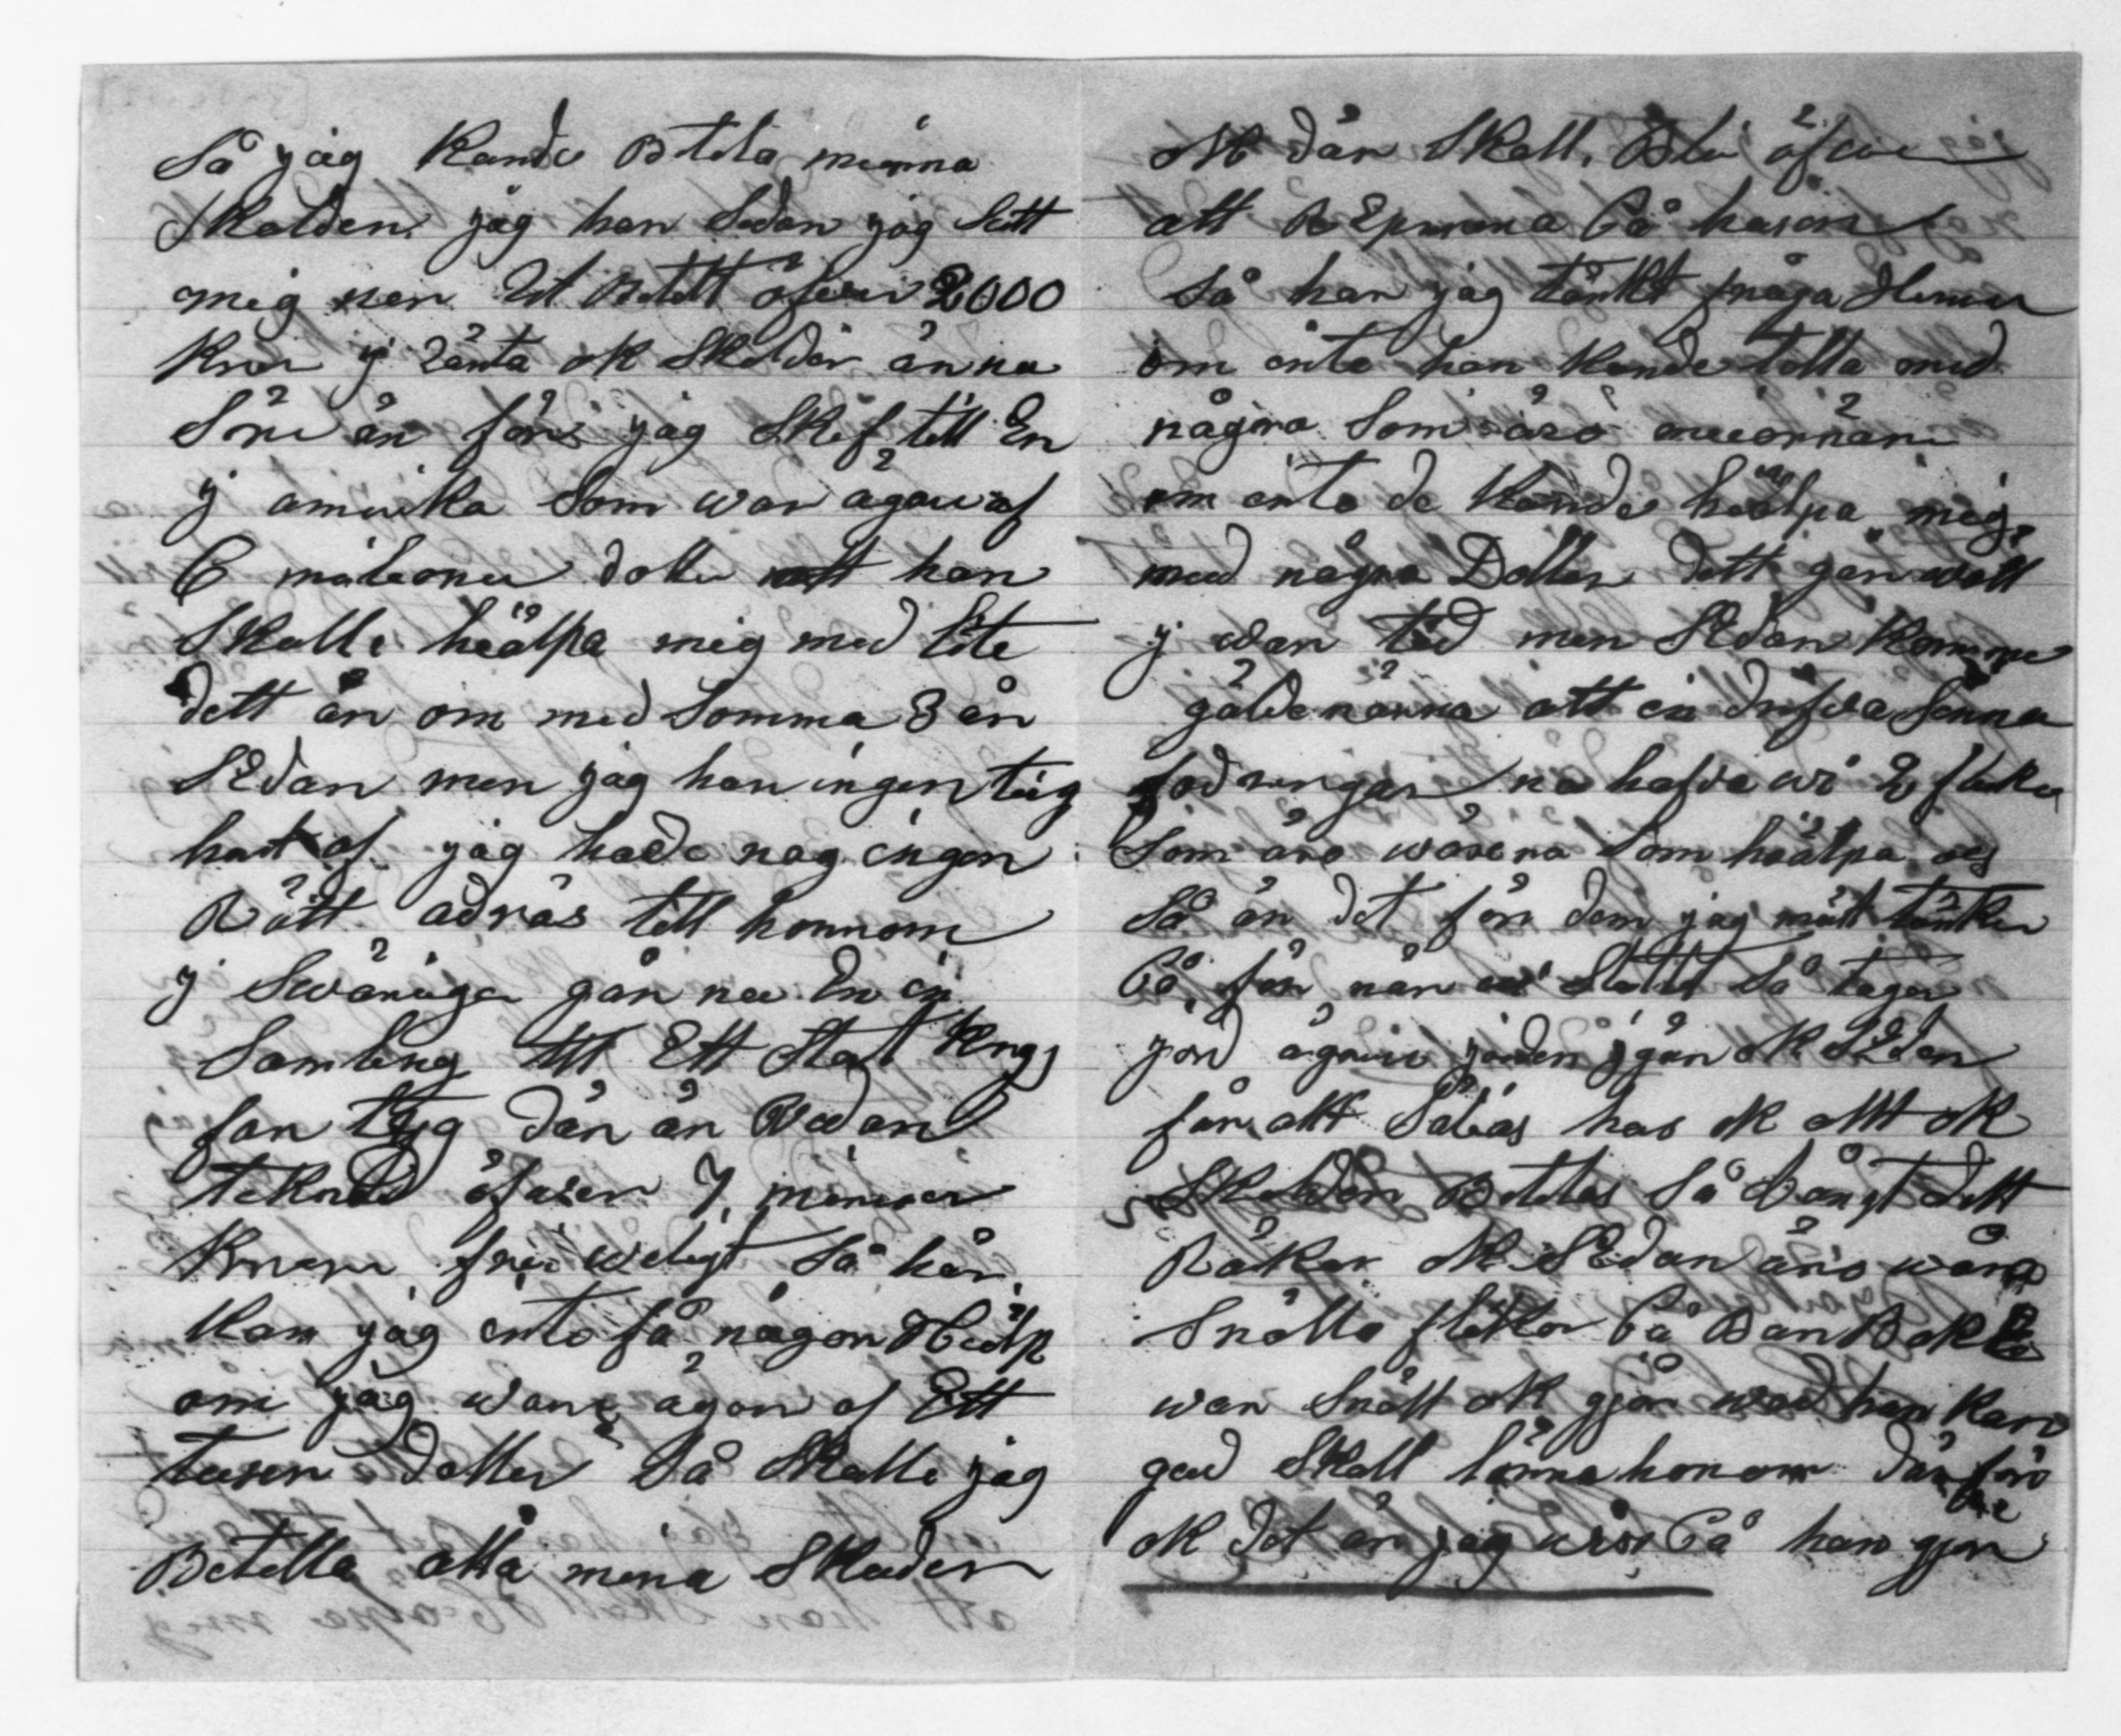 Så jag Kunde Btela minna
Skolden. jag har Sedan jag Sett
mig ner Ut Betelt öfwer 2000
Kror j ränta ok Skolder änna
Srü än förs jag Skref till En
j amerika Som war ägare af
6 mileoner doller att han
Skulle heälpa mig med lite
dett är om med Somma 3 år
SEdan men jag har ingen tüg
hart af jag hade nog ingen
Rätt adräs till honnom
j Sweäriga går nu En in
Samleng till Ett Stort Krigs
far tyg där är Redan
teknad öfwer 7 miniver
Kroner freiweligt Så här
Kan jag inte få någon Heälp
om jag wore ägar af Ett
tusen doller Så Skulle jag
Betella alla mina Skulder
ok där Skall Bli öfwer
att REpurera På husen
Så har jag tänkt fråga
om inte han Kunde talla med
någira Som äro
om inte de Kunde heälpa mig
med några Doller dett går wäll
j wår tid men SEdan Komme
gäldenärna att in drifwa Senna
fodringar nu hafwa wi 2 flicker
Som äro wäxena Som heälpa oss
Så är det för dem jag mäst tänker
På för när Slutet Så tager
jord ägare jorden jgän ok SEdan
får allt Säljas hus ok allt ok
Skolden Betelas Så långt dett
Räker ok SEdan äro wåra
Snälla flikor På BarBaKe
war Snäll ok gjör wad han kan
gud Skall lönna honom där före
ok det är jag wiss På han gjör